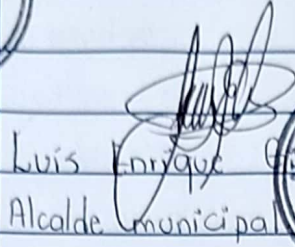 Luis Enrique
Alcalde municipal